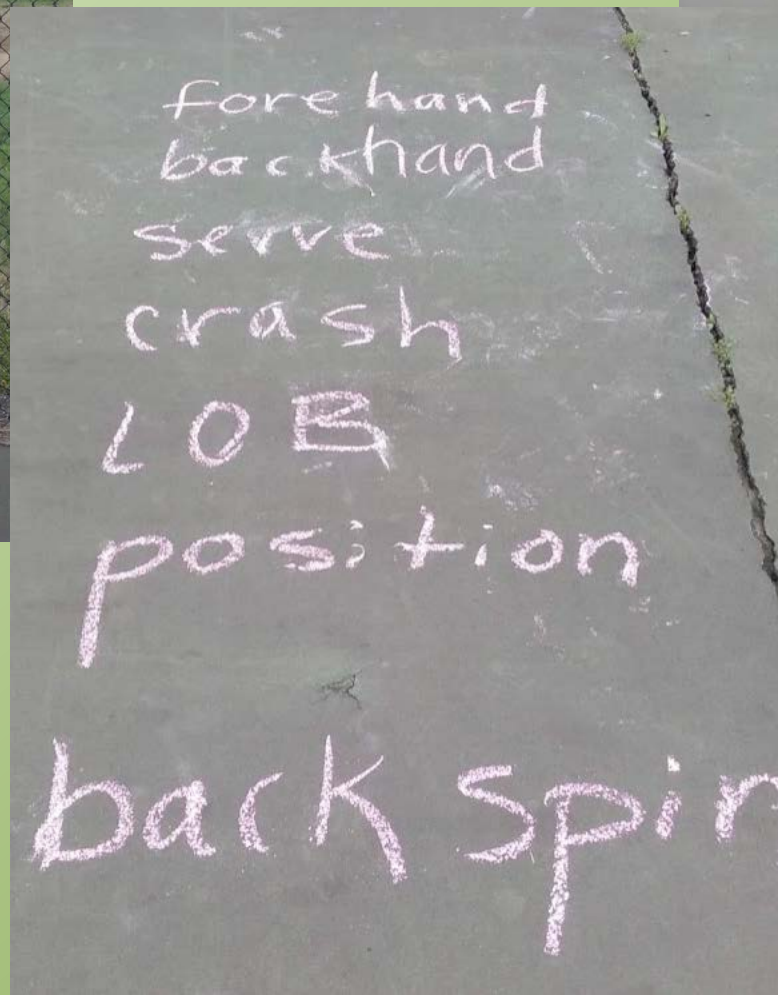 forehand
backhand
serve
crash
LOB
position
back spin